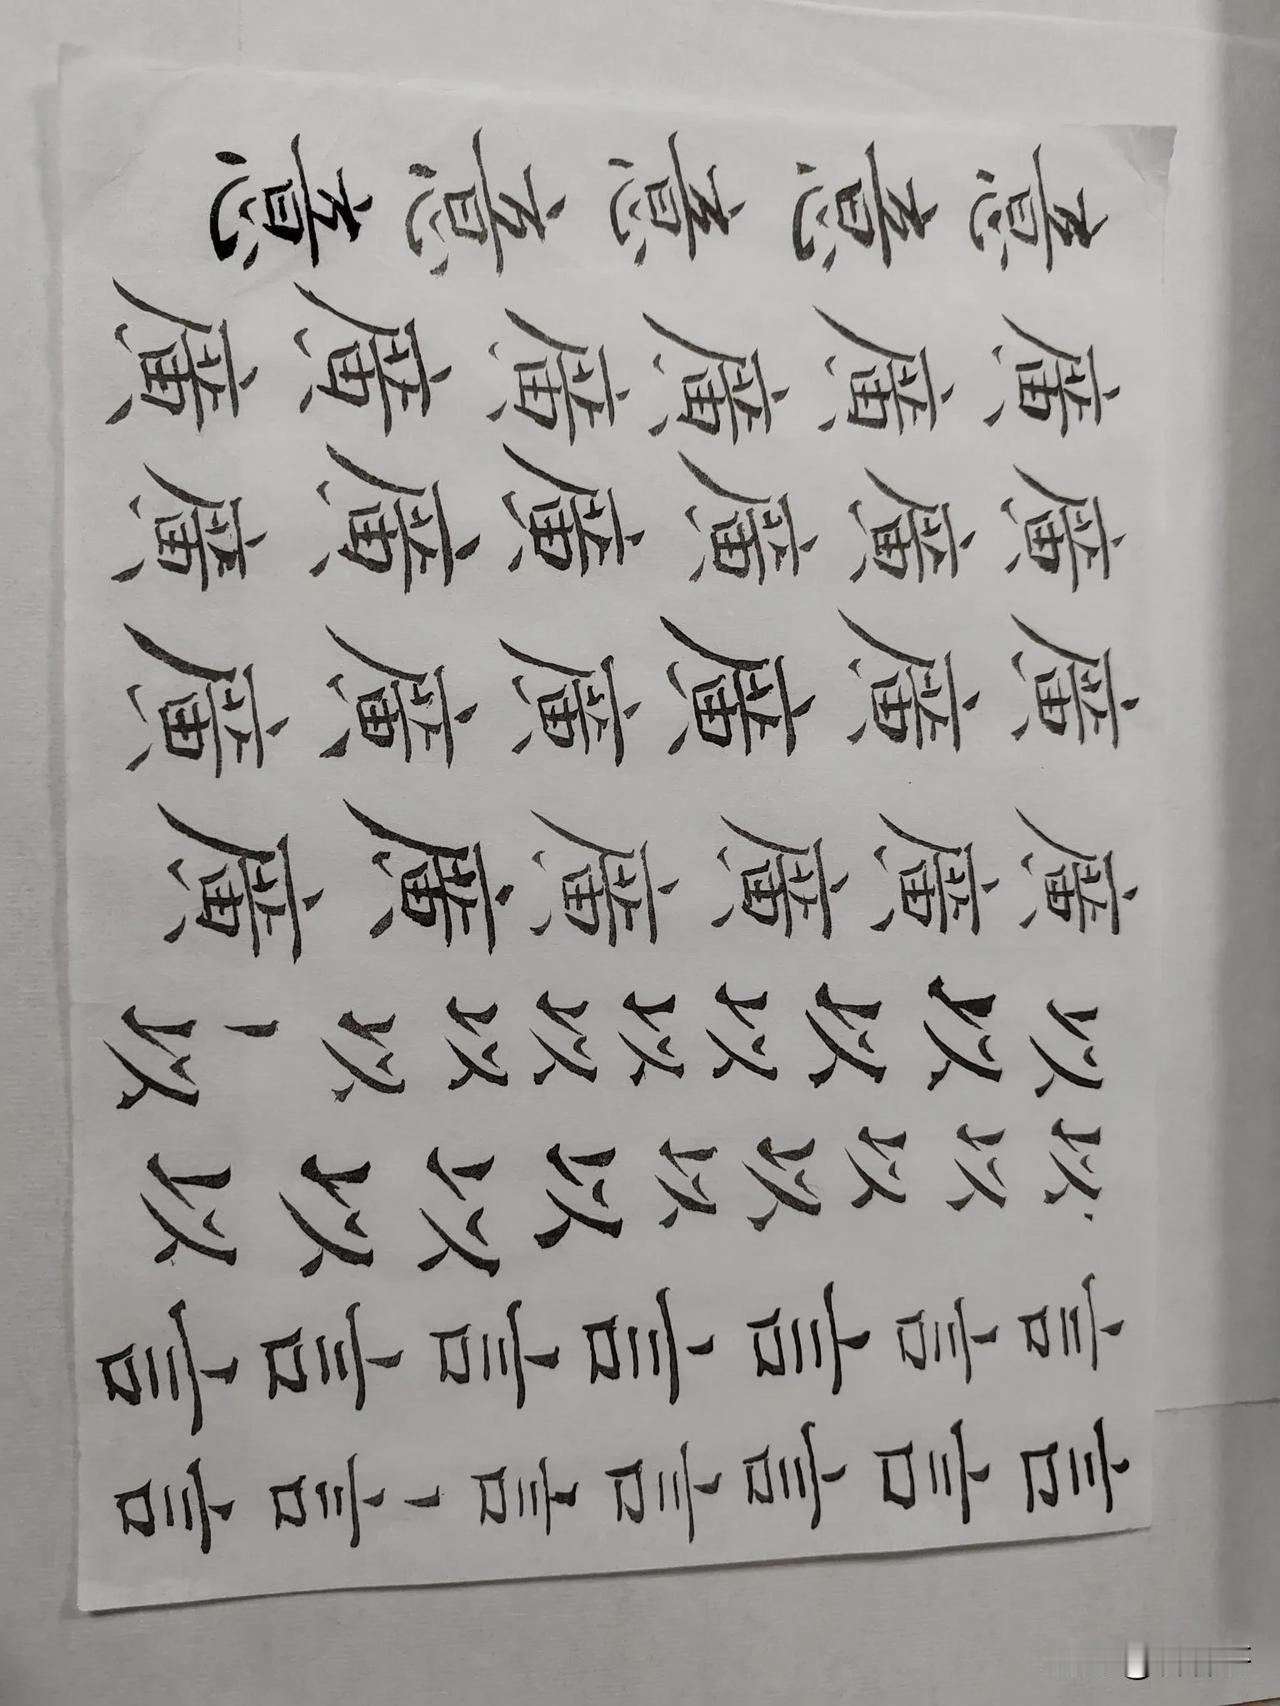 言言言言言言言
言言言言言言言
以以以以以以以以以
以以以以以以以以以
廣廣廣廣廣廣
廣廣廣廣廣廣
廣廣廣廣廣廣
廣廣廣廣廣廣
意意意意意